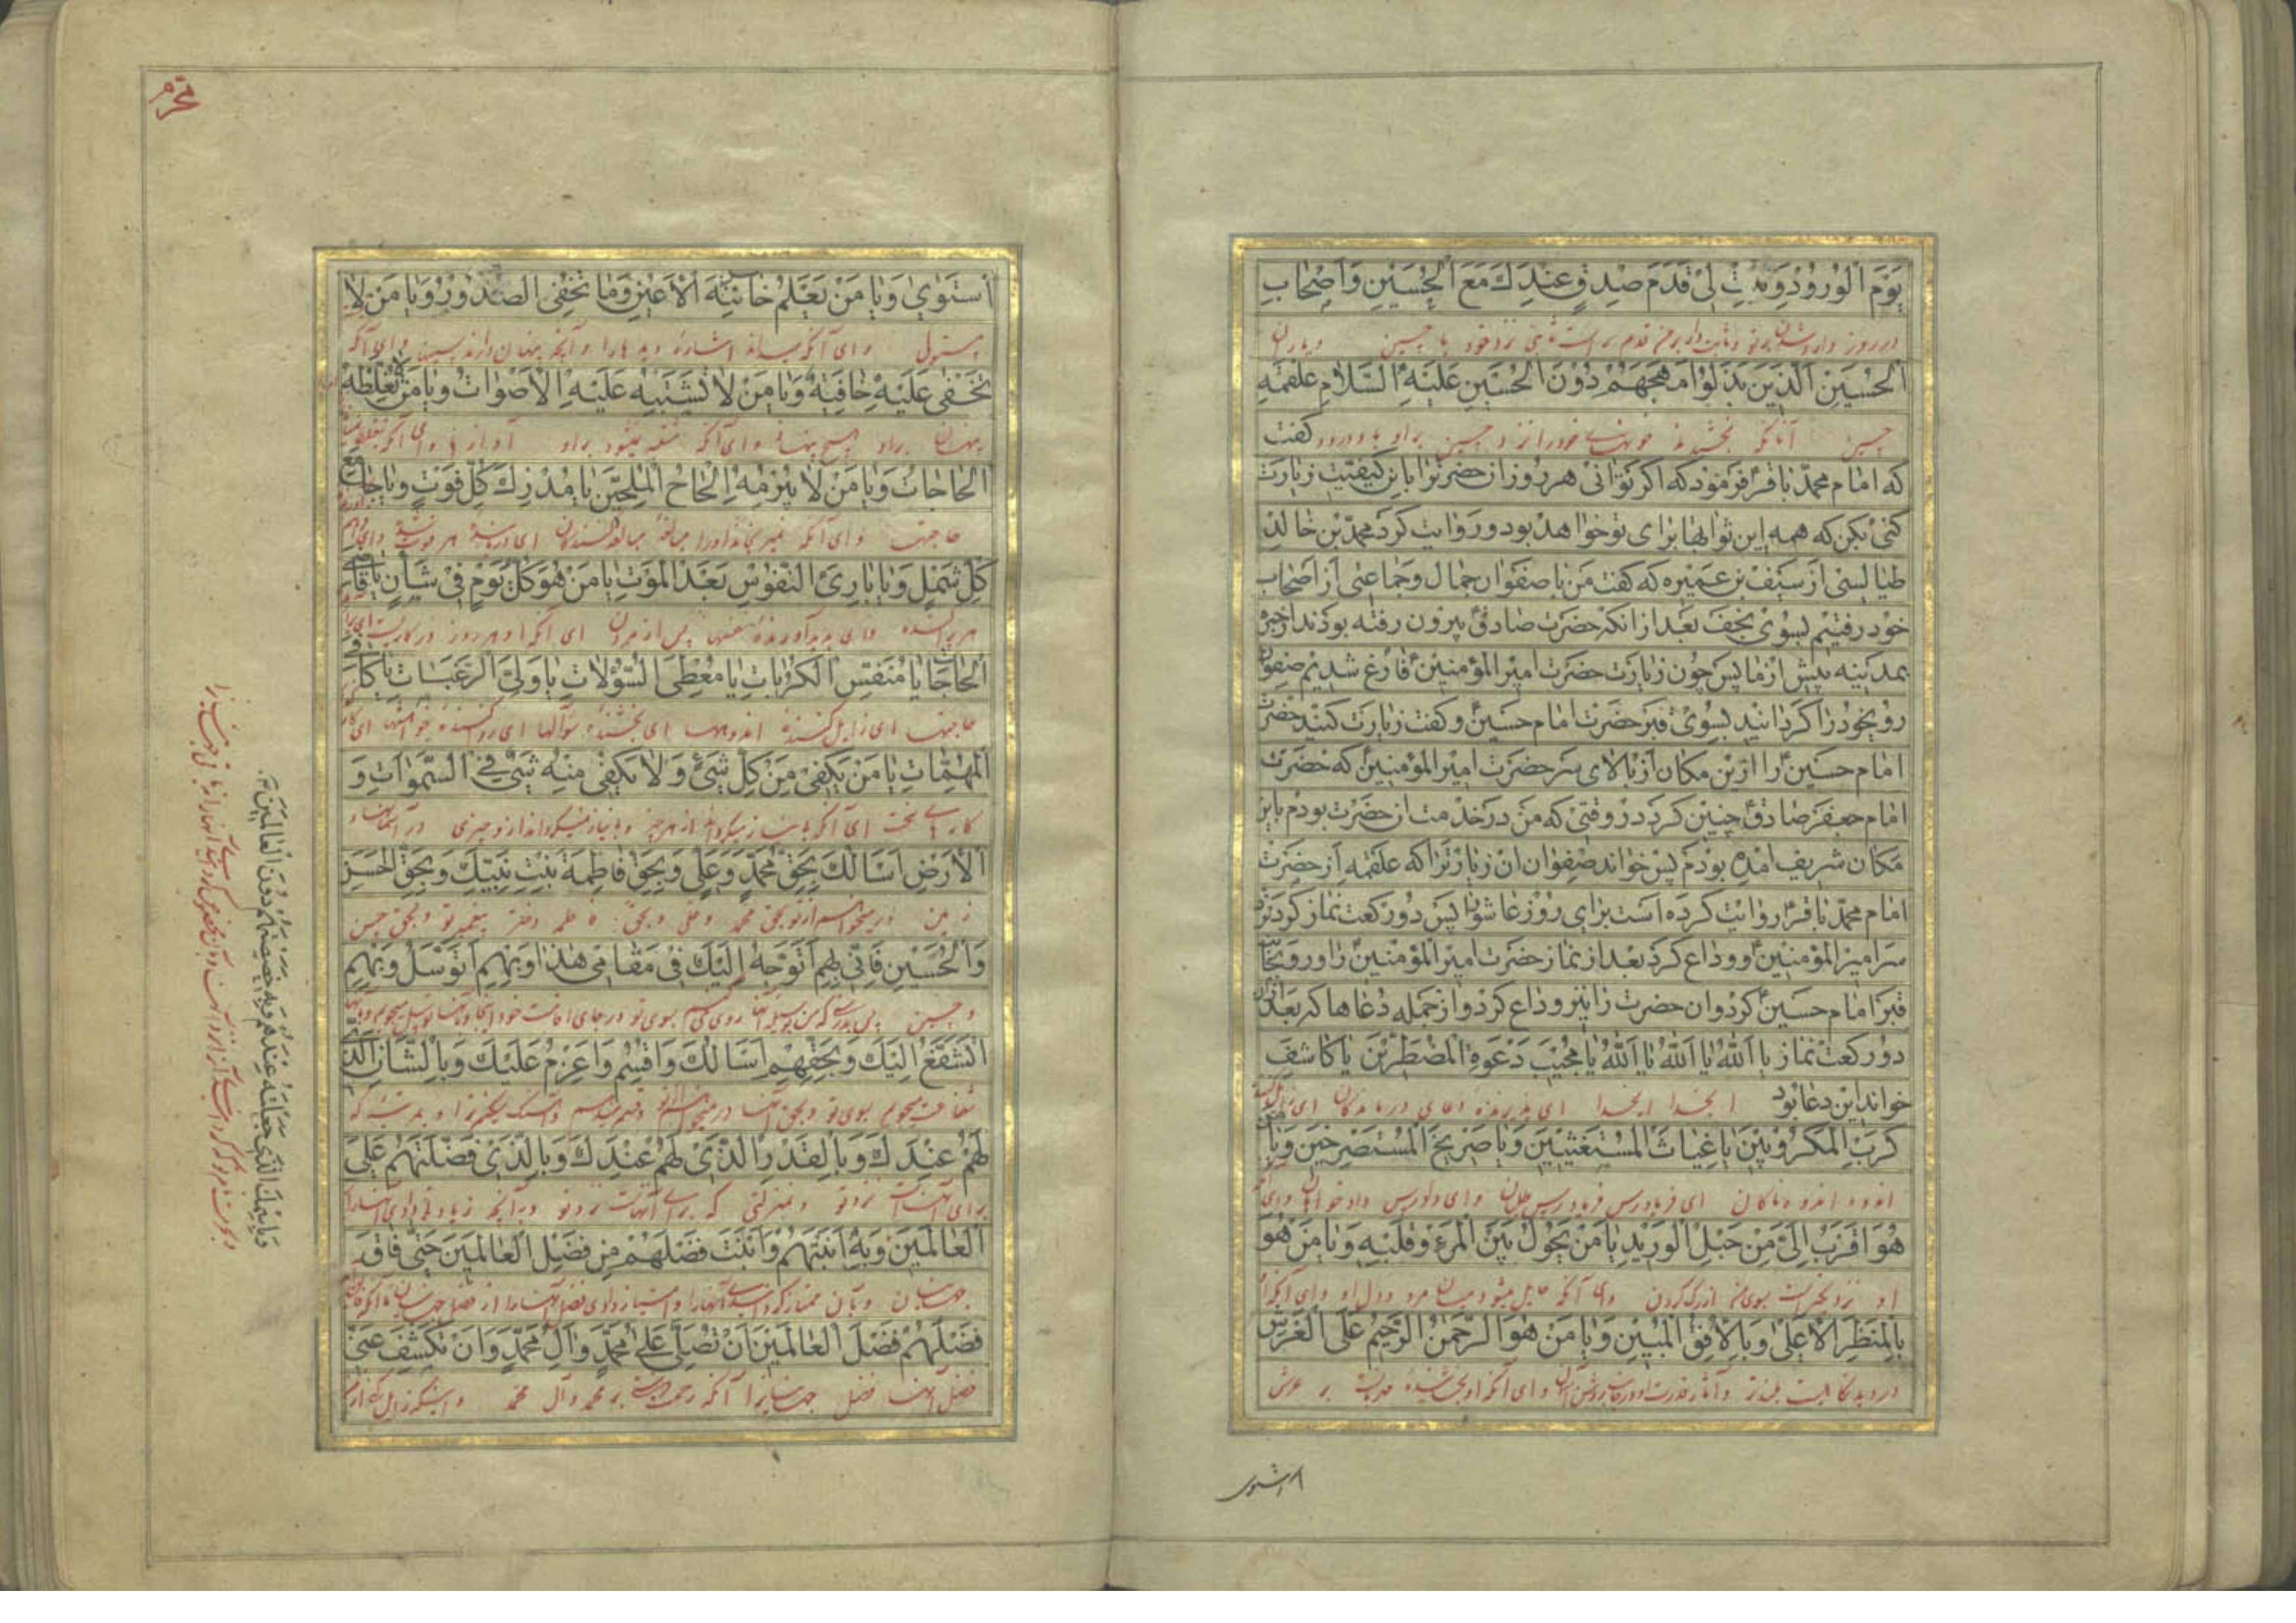 یَوْمَ الْوُرُودِ وَثَبِّتْ لِی قَدَمَ صِدْقٍ عِنْدَكَ مَعَ الْحُسَیْنِ وَاَصْحَابِ
در روز وارد شدن بر تو و ثابت دار برای من قدم راست نزد خود با حسین و یاران
الْحُسَیْنِ الَّذِینَ بَذَلُوا مُهَجَهُمْ دُونَ الْحُسَیْنِ عَلَیْهِ السَّلَامُ علقمه
حسین آنانکه بخشیدند خونهای خود را نزد حسین بر او باد درود گفت
که امام محمّد باقرؑ فرمود که اگر توانی هر روز ان حضرترا باین کیفیّت زیارت
کنی بکن که همه این ثوابها برای تو خواهد بود و روایت کرد محمّد بن خالد
طیالسی از سیف بن عمیره که گفت من با صفوان جمال و جماعتی از اصحاب
خود رفتیم بسوی نجف بعد از انکه حضرت صادقؑ بیرون رفته بودند از حیره
بمدینه پیش از ما پس چون زیارت حضرت امیر المؤمنینؑ فارغ شدیم صفوان
رو بخود را گردانید بسوی قبر حضرت امام حسینؑ و گفت زیارت کنید حضرت
امام حسینؑ را ازین مکان از بالای سر حضرت امیر المؤمنینؑ که حضرت
امام جعفر صادقؑ چنین کرد در وقتی که من در خدمت ان حضرت بودم باین
مکان شریف امده بودم پس خواند صفوان ان زیارترا که علقمه از حضرت
امام محمّد باقرؑ روایت کرده است برای روز عاشورا پس دو رکعت نماز کرد نزد
سر امیر المؤمنینؑ و وداع کرد بعد از نماز حضرت امیر المؤمنینؑ را و رو بجانب
قبر امام حسینؑ کرد و ان حضرت را نیز وداع کرد و از جمله دعاها که بعد از ان
دو رکعت نماز یَا اَللّٰهُ یَا اَللّٰهُ یَا اَللّٰهُ یَا مُجِیبَ دَعْوَةِ الْمُضْطَرِّینَ یَا كَاشِفَ
خواند این دعا بود ایخدا ایخدا ای پذیرنده دعای درماندگان ای
كَرْبِ الْمَكْرُوبِینَ یَا غِیَاثَ الْمُسْتَغِیثِینَ وَیَا صَرِیخَ الْمُسْتَصْرِخِینَ وَیَا مَنْ
اندوه اندوهناکان ای فریادرس فریادرس طلبان و ای دادرس دادخواهان و ای آنکه
هُوَ اَقْرَبُ اِلَیَّ مِنْ حَبْلِ الْوَرِیدِ یَا مَنْ یَحُولُ بَیْنَ الْمَرْءِ وَقَلْبِهِ وَیَا مَنْ هُوَ
او نزدیکتر است بسوی من از رگ گردن و ای آنکه حایل میشود میان مرد و دل او و ای آنکه او
بِالْمَنْظَرِ الْاَعْلٰی وَبِالْاُفُقِ الْمُبِینِ وَیَا مَنْ هُوَ الرَّحْمٰنُ الرَّحِیمُ عَلَی الْعَرْشِ
و ای آنکه او بخشنده مهربانست بر عرش
استوی
محرّم
اسْتَوٰی وَیَا مَنْ یَعْلَمُ خَائِنَةَ الْاَعْیُنِ وَمَا تُخْفِی الصُّدُورُ وَیَا مَنْ لَا
مستولی و ای آنکه میداند اشارت دیدهارا و آنچه پنهان دارند سینها و ای آنکه
تَخْفٰی عَلَیْهِ خَافِیَةٌ وَیَا مَنْ لَا تَشْتَبِهُ عَلَیْهِ الْاَصْوَاتُ وَیَا مَنْ لَا تُغَلِّطُهُ
پنهان بر او هیچ پنهانی و ای آنکه مشتبه نشود بر او آوازها و ای آنکه
الْحَاجَاتُ وَیَا مَنْ لَا یُبْرِمُهُ اِلْحَاحُ الْمُلِحِّینَ یَا مُدْرِكَ كُلِّ فَوْتٍ وَیَا جَامِعَ
حاجتها و ای آنکه اورا مبالغه مبالغه کنندگان ای دریابنده هر فوت شده و ای
كُلِّ شَمْلٍ وَیَا بَارِئَ النُّفُوسِ بَعْدَ الْمَوْتِ یَا مَنْ هُوَ كُلَّ یَوْمٍ فِی شَأْنٍ یَا قَاضِیَ
هر پراکنده و ای پدید آورنده نفسها پس از مردن ای آنکه او هر روز در کاریست ای
الْحَاجَاتِ یَا مُنَفِّسَ الْكُرُبَاتِ یَا مُعْطِیَ السُّؤُلَاتِ یَا وَلِیَّ الرَّغَبَاتِ یَا كَافِیَ
حاجتها ای زایل کننده اندوهها ای بخشنده سؤالها ای خواهشها ای
الْمُهِمَّاتِ یَا مَنْ یَكْفِی مِنْ كُلِّ شَیْءٍ وَلَا یَكْفِی مِنْهُ شَیْءٌ فِی السَّمٰوَاتِ وَ
کارهای سخت ای آنکه بی نیاز میگرداند از هر چیز و بی نیاز نمیگرداند از او چیزی در آسمانها و
الْاَرْضِ اَسْاَلُكَ بِحَقِّ مُحَمَّدٍ وَعَلِیٍّ وَبِحَقِّ فَاطِمَةَ بِنْتِ نَبِیِّكَ وَبِحَقِّ الْحَسَنِ
زمین میخواهم از تو بحق محمد و علی و بحق فاطمه دختر پیغمبر تو و بحق حسن
وَالْحُسَیْنِ فَاِنِّی بِهِمْ اَتَوَجَّهُ اِلَیْكَ فِی مَقَامِی هٰذَا وَبِهِمْ اَتَوَسَّلُ وَبِهِمْ
و حسین پس بدرستی که من بوسیله آنها روی میکنم بسوی تو در جای اقامت خود اینجا
اَتَشَفَّعُ اِلَیْكَ وَبِحَقِّهِمْ اَسْاَلُكَ وَاُقْسِمُ وَاَعْزِمُ عَلَیْكَ وَبِالشَّاْنِ الَّذِی
شفاعت میجویم بسوی تو و بحق آنها
لَهُمْ عِنْدَكَ وَبِالْقَدْرِ الَّذِی لَهُمْ عِنْدَكَ وَبِالَّذِی فَضَّلْتَهُمْ عَلَی
برای آنهاست نزد تو و بمنزلتی که برای آنهاست نزد تو و به آنچه زیادتی دادی آنهارا
الْعَالَمِینَ وَبِهِ اَبَنْتَهُمْ وَاَبَنْتَ فَضْلَهُمْ مِنْ فَضْلِ الْعَالَمِینَ حَتّٰی فَاقَ
جهانیان و بآن ممتاز گردانیدی آنهارا و امتیاز دادی فضل آنهارا از فضل جهانیان تا آنکه
فَضْلُهُمْ فَضْلَ الْعَالَمِینَ اَنْ تُصَلِّیَ عَلٰی مُحَمَّدٍ وَاٰلِ مُحَمَّدٍ وَاَنْ تَكْشِفَ عَنِّی
فضل آنها فضل جهانیانرا آنکه رحمت فرستی بر محمد و آل محمد و اینکه زایل کنی از من
وَبِاسْمِكَ الَّذِی جَعَلْتَهُ عِنْدَهُمْ وَبِهِ خَصَصْتَهُمْ دُونَ الْعَالَمِینَ